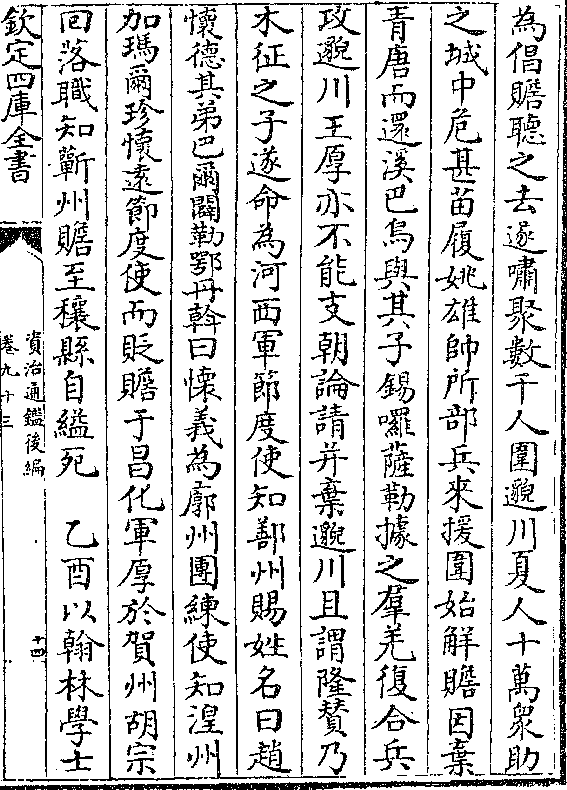 為倡贍聽之去遂嘯聚數千人圍邈川夏人十萬衆助
之城中危甚苗履姚雄帥所部兵來援圍始解贍因棄
青唐而還溪巴烏與其子錫囉薩勒據之羣羌復合兵
攻邈川王厚亦不能支朝論請并棄邈川且謂隆贊乃
木征之子遂命為河西軍節度使知鄯州賜姓名曰趙
懷德其弟巴爾闕勒鄂丹斡曰懷義為廓州團練使知湟州
加瑪爾珍懷遠節度使而貶贍于昌化軍厚於賀州胡宗
回落職知蘄州贍至穰縣自縊死　乙酉以翰林學士
欽定四庫全書
資治通鑑後編
卷九十三
十四